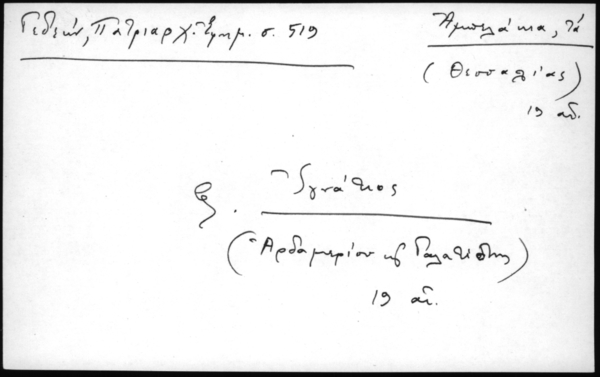 Γεδεών, Πατριαρχ. Ἐφημ. σ. 519
Ἀμπελάκια, τά
(Θεσσαλίας)
19 αἰ.
Ἰγνάτιος
(Ἀρδαμερίου καὶ Γαλατίστης)
19 αἰ.